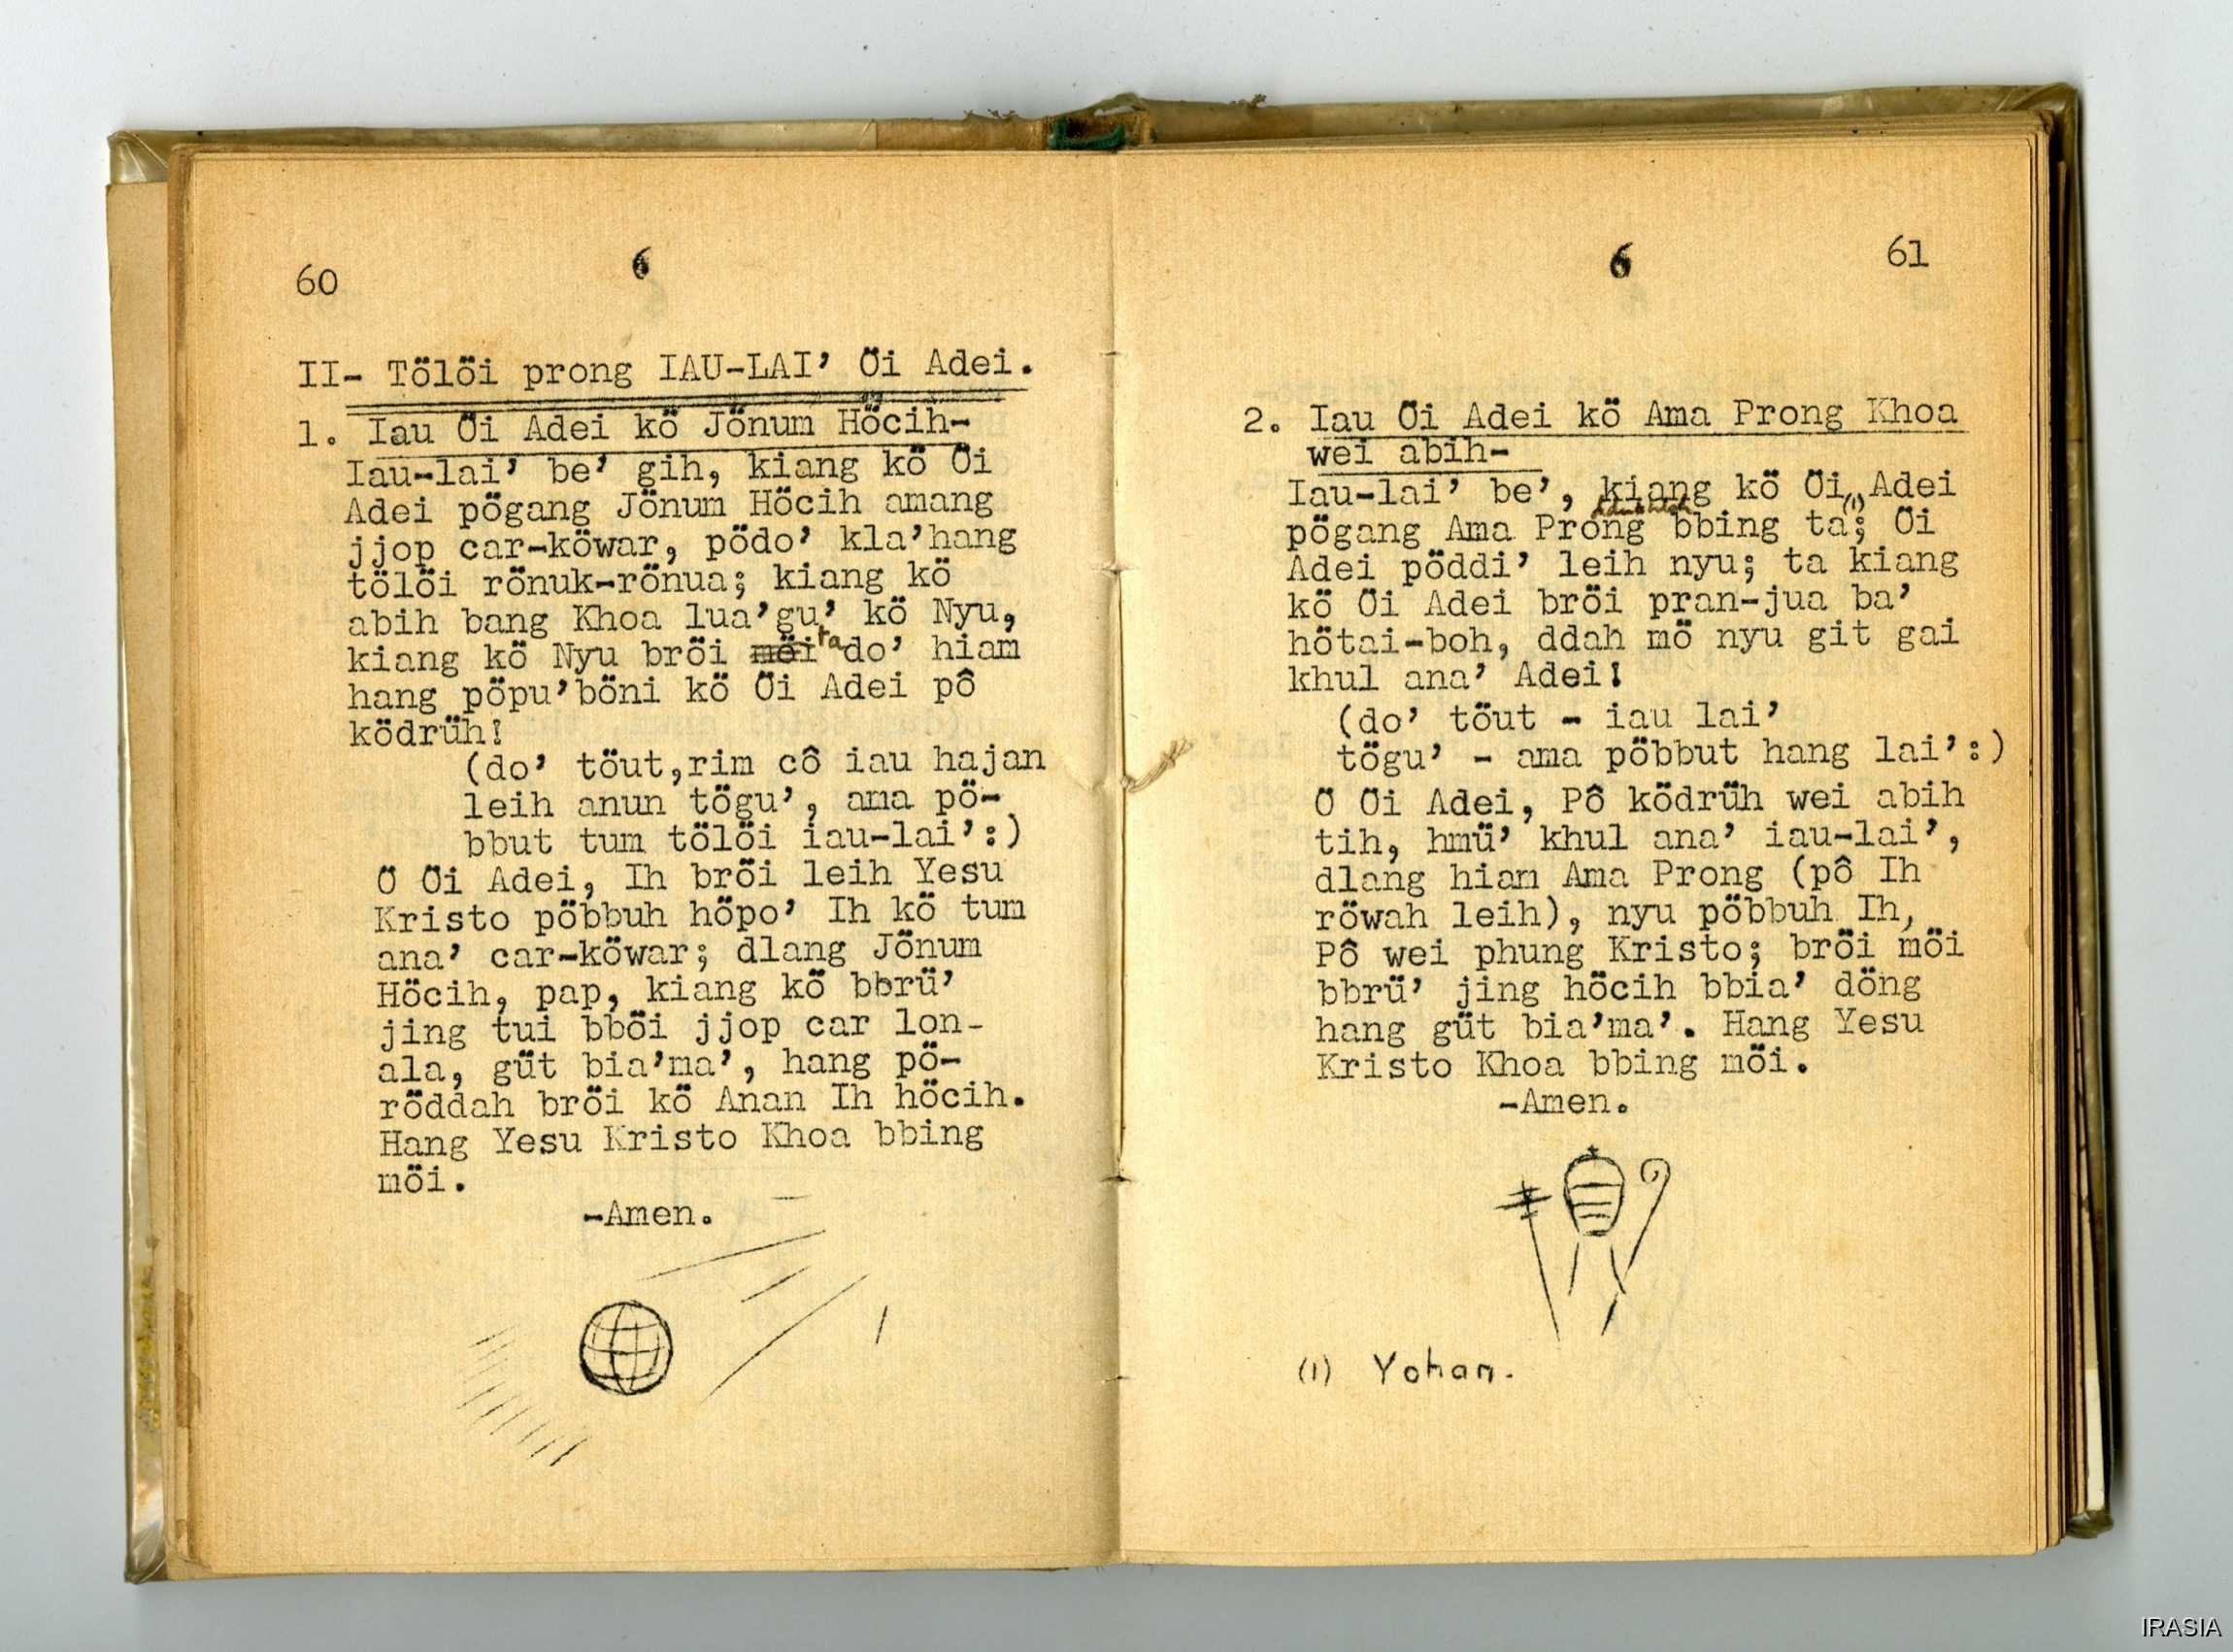 60
6
II- Tölöi prong IAU-LAI' Öi Adei.
1. Iau Öi Adei kö Jönum Höcih-
Iau-lai' be' gih, kiang kö Öi
Adei pögang Jönum Höcih amang
jjop car-köwar, pödo' kla'hang
tölöi rönuk-rönua; kiang kö
abih bang Khoa lua'gu' kö Nyu,
kiang kö Nyu bröi möi ta do' hiam
hang pöpu'böni kö Öi Adei pô
ködrüh!
(do' töut,rim cô iau hajan
leih anun tögu', ama pö-
bbut tum tölöi iau-lai':)
Ö Öi Adei, Ih bröi leih Yesu
Kristo pöbbuh höpo' Ih kö tum
ana' car-köwar; dlang Jönum
Höcih, pap, kiang kö bbrü'
jing tui bböi jjop car lon-
ala, güt bia'ma', hang pö-
röddah bröi kö Anan Ih höcih.
Hang Yesu Kristo Khoa bbing
möi.
-Amen.
6
61
2. Iau Öi Adei kö Ama Prong Khoa
wei abih-
Iau-lai' be', kiang kö Öi Adei
pögang Ama Prong bbing ta(1); Öi
Adei pöddi' leih nyu; ta kiang
kö Öi Adei bröi pran-jua ba'
hötai-boh, ddah mö nyu git gai
khul ana' Adei!
(do' töut - iau lai'
tögu' - ama pöbbut hang lai':)
Ö Öi Adei, Pô ködrüh wei abih
tih, hmü' khul ana' iau-lai',
dlang hiam Ama Prong (pô Ih
röwah leih), nyu pöbbuh Ih,
Pô wei phung Kristo; bröi möi
bbrü' jing höcih bbia' döng
hang güt bia'ma'. Hang Yesu
Kristo Khoa bbing möi.
-Amen.
(1) Yohan.
IRASIA